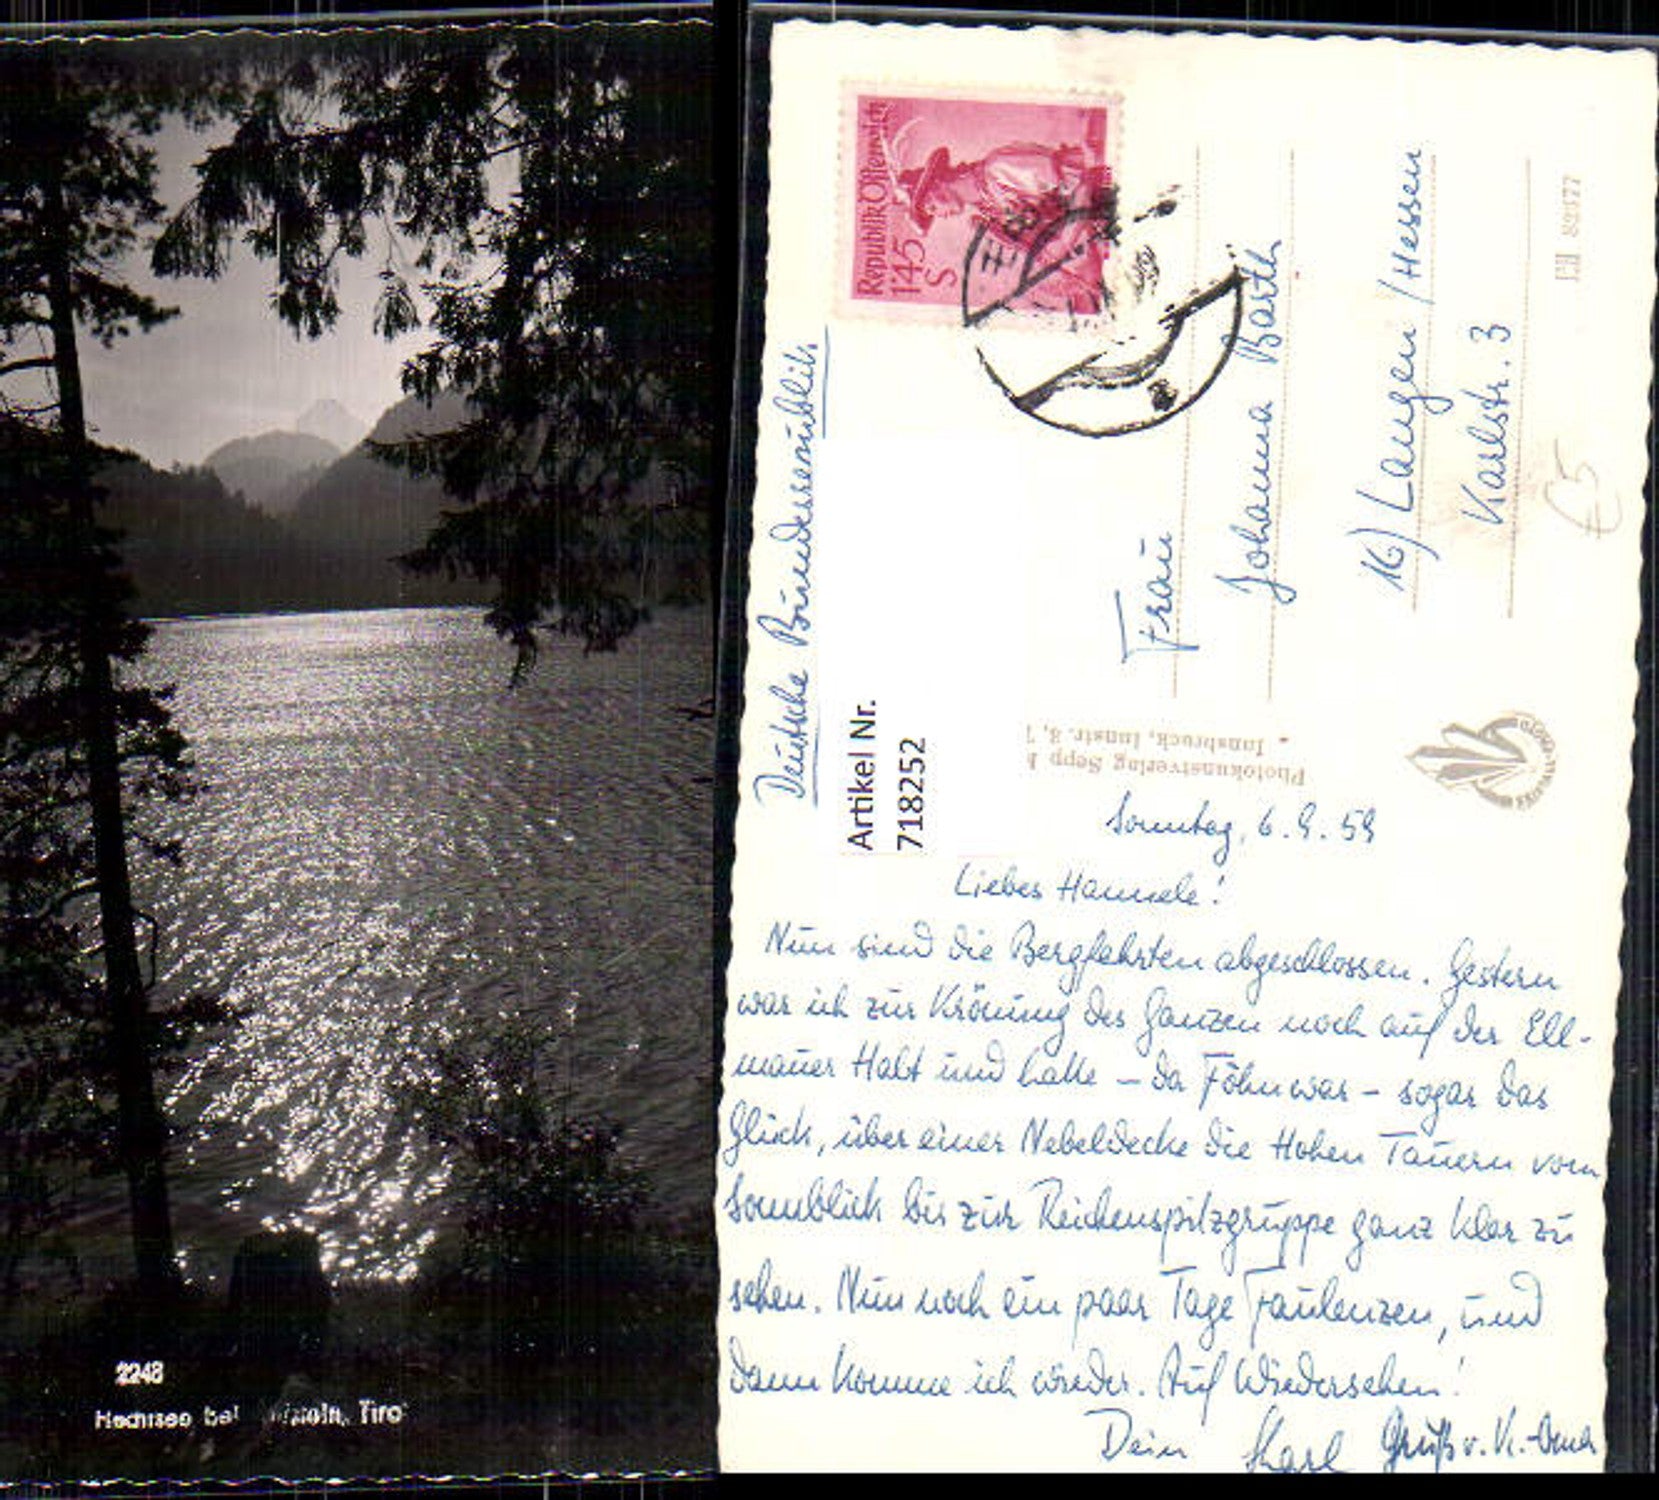 2248
Hechtsee bei Tirol
Republik Österreich
1'45
S
Deutsche Bundesrepublik
Artikel Nr.
718252
Frau
Johanna Barth
16) Langen / Hessen
Karlstr. 3
Photokunstverlag Sepp
Innsbruck, Innstr. 8,
€5
Sonntag, 6.9.59
Liebes Hannele!
Nun sind die Bergfahrten abgeschlossen. Gestern
war ich zur Krönung des Ganzen noch auf der Ell-
mauer Halt und hatte – da Föhn war – sogar das
Glück, über einer Nebeldecke die Hohen Tauern vom
Sonnblick bis zur Reichenspitzgruppe ganz klar zu
sehen. Nun noch ein paar Tage Faulenzen, und
dann komme ich wieder. Auf Wiedersehen!
Dein Karl Gruß v. K.-Oma